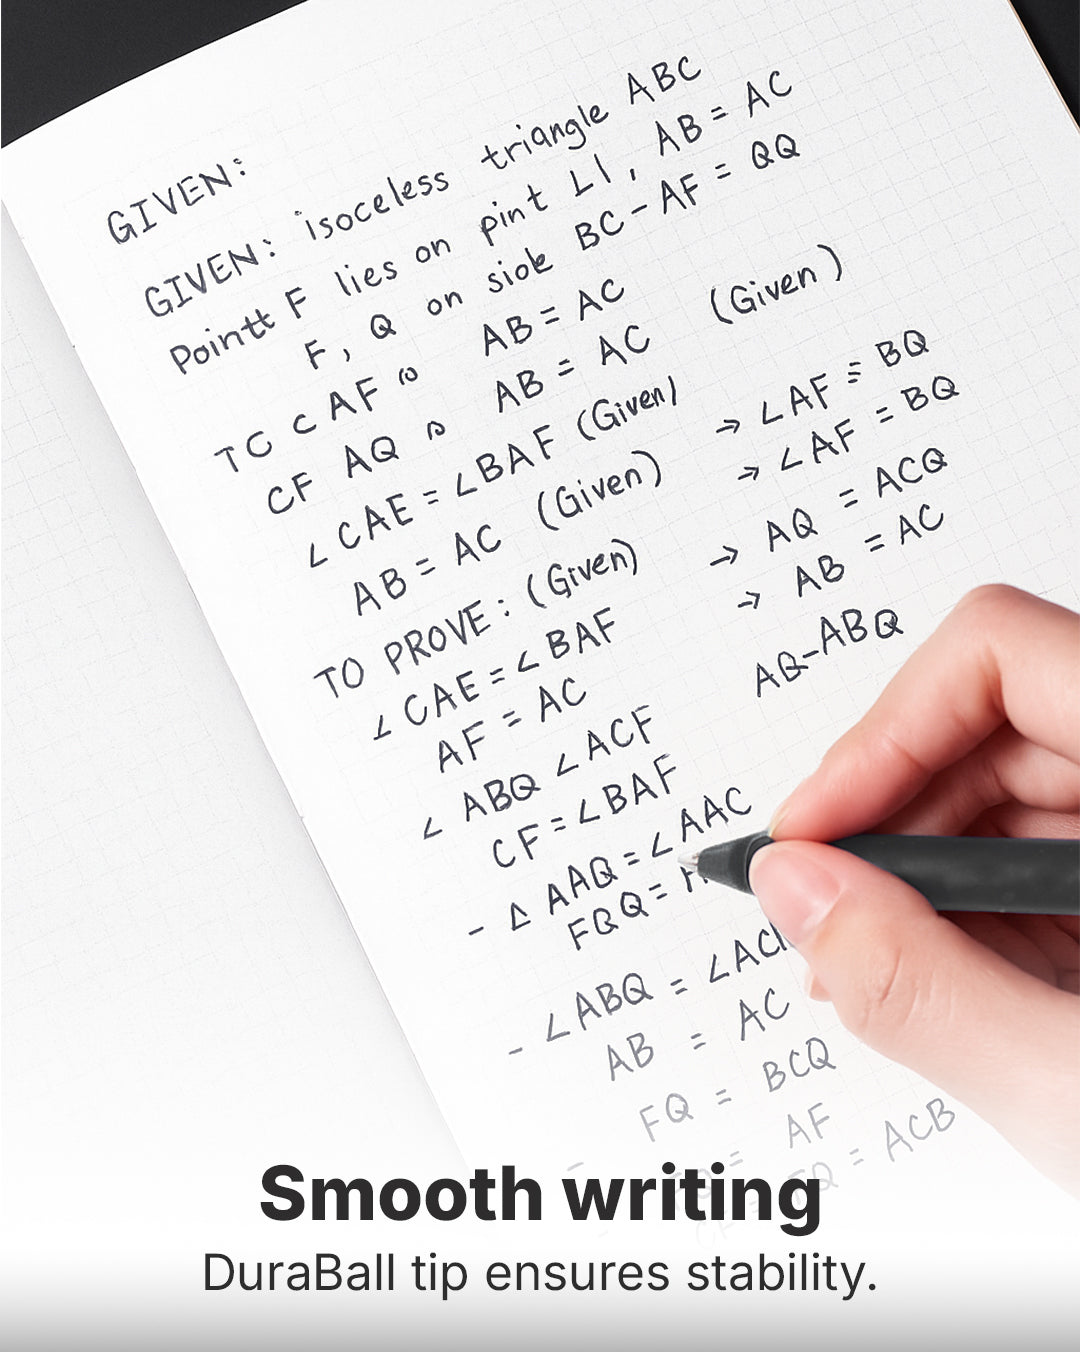 GIVEN:
GIVEN: isoceless triangle ABC
Pointt F lies on pint L1, AB = AC
F, Q on side BC - AF = QQ
TC C AF AB = AC
CF AQ AB = AC (Given)
∠CAE = ∠BAF (Given) → ∠AF = BQ
AB = AC (Given) → ∠AF = BQ
TO PROVE: (Given) → AQ = ACQ
∠CAE = ∠BAF → AB = AC
AF = AC AQ-ABQ
∠ABQ ∠ACF
CF = ∠BAF
- Δ AAQ = ∠AAC
FQQ =
- ∠ABQ =
AB = AC
FQ = BCQ
= AF
= ACB
Smooth writing
DuraBall tip ensures stability.